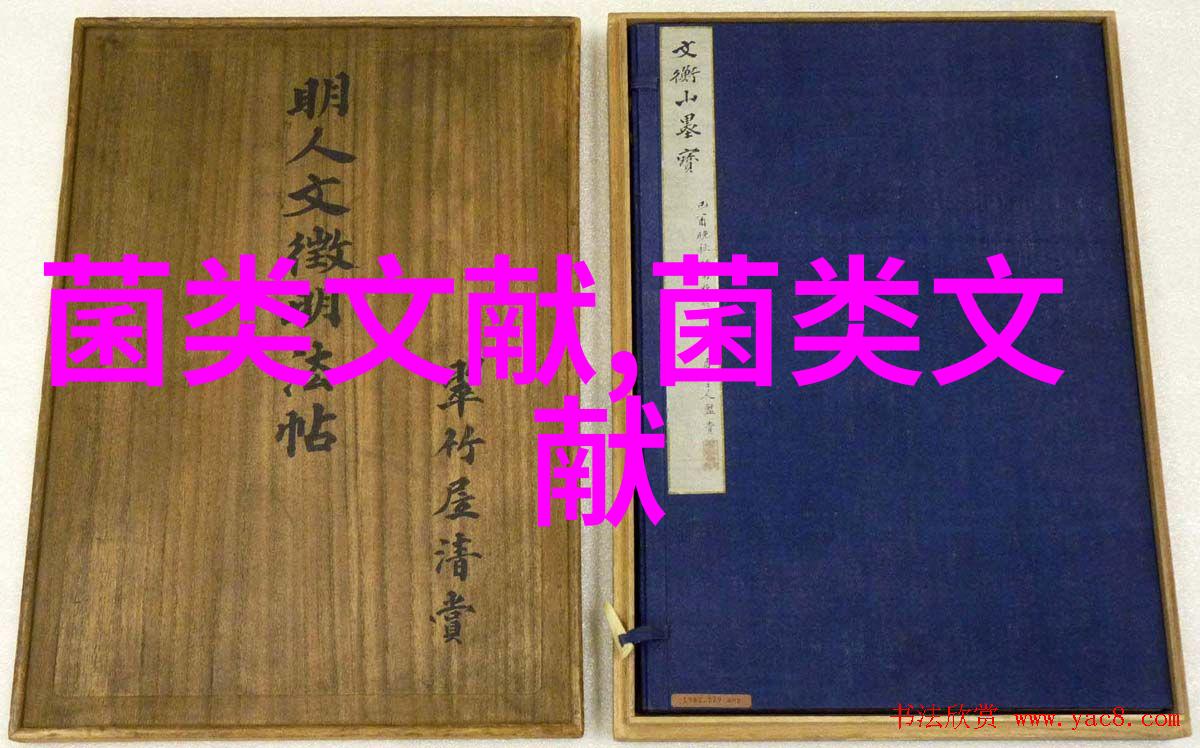 明人文徵明法帖
翠竹屋清賞
文衡山墨寶
菌类文献,菌类文
献
书法欣赏 www.yac8.com